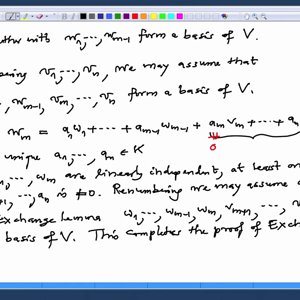 with w₁,..., w_{m-1} form a basis of V.
v₁,..., v_n, we may assume that
w_{m-1}, v_m,..., v_n form a basis of V.
w_m = a₁w₁+...+a_{m-1}w_{m-1} + a_m v_m+...+a_n
0
unique a₁,..., a_n ∈ K
w_m are linearly independent, at least on
a_n is ≠0. Renumbering we may assume a
Exchange Lemma w₁,..., w_{m-1}, w_m, v_{m+1},...,
basis of V. This completes the proof of Exch